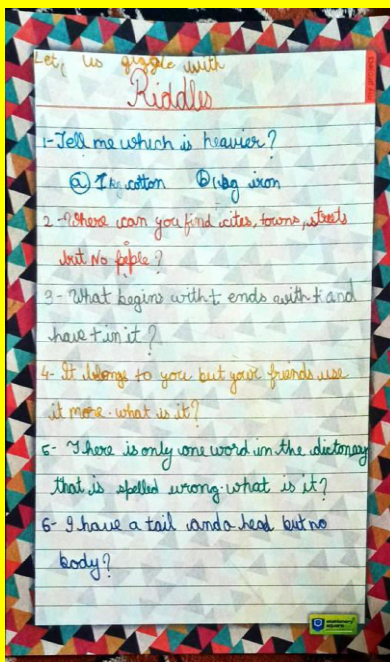 Let, us giggle with
Riddles
1- Tell me which is heavier?
ⓐ 1 kg cotton ⓑ 1 kg iron
2 - Where can you find cites, towns, streets
but No people?
3 - What begins with t ends with t and
have t in it?
4- It belongs to you but your friends use
it more. what is it?
5- There is only one word in the dictonary
that is spelled wrong. what is it?
6- I have a tail and a head but no
body?